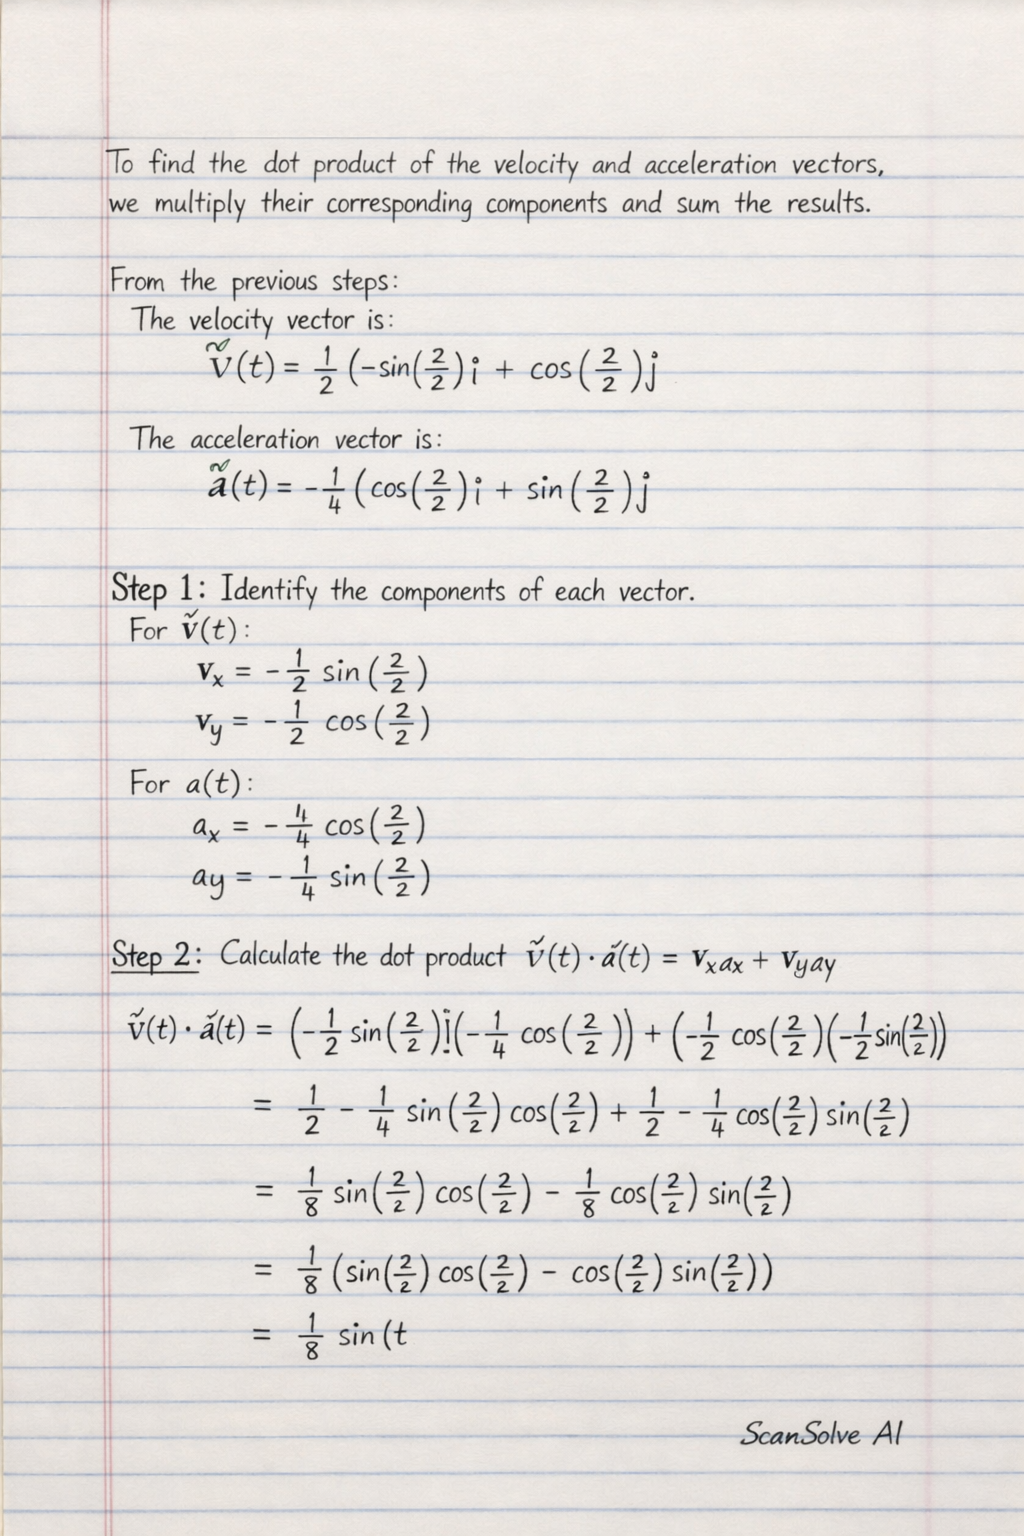 To find the dot product of the velocity and acceleration vectors,
we multiply their corresponding components and sum the results.
From the previous steps:
The velocity vector is:
ṽ(t) = 1/2 (-sin(2/2)i + cos(2/2)j
The acceleration vector is:
ã(t) = -1/4 (cos(2/2)i + sin(2/2)j
Step 1: Identify the components of each vector.
For ṽ(t):
vₓ = -1/2 sin(2/2)
v_y = -1/2 cos(2/2)
For a(t):
aₓ = -4/4 cos(2/2)
ay = -1/4 sin(2/2)
Step 2: Calculate the dot product ṽ(t)·ã(t) = vₓaₓ + v_yay
ṽ(t)·ã(t) = (-1/2 sin(2/2)!(-1/4 cos(2/2)) + (-1/2 cos(2/2)(-1/2 sin(2/2))
= 1/2 - 1/4 sin(2/2) cos(2/2) + 1/2 - 1/4 cos(2/2) sin(2/2)
= 1/8 sin(2/2) cos(2/2) - 1/8 cos(2/2) sin(2/2)
= 1/8 (sin(2/2) cos(2/2) - cos(2/2) sin(2/2))
= 1/8 sin(t
ScanSolve AI